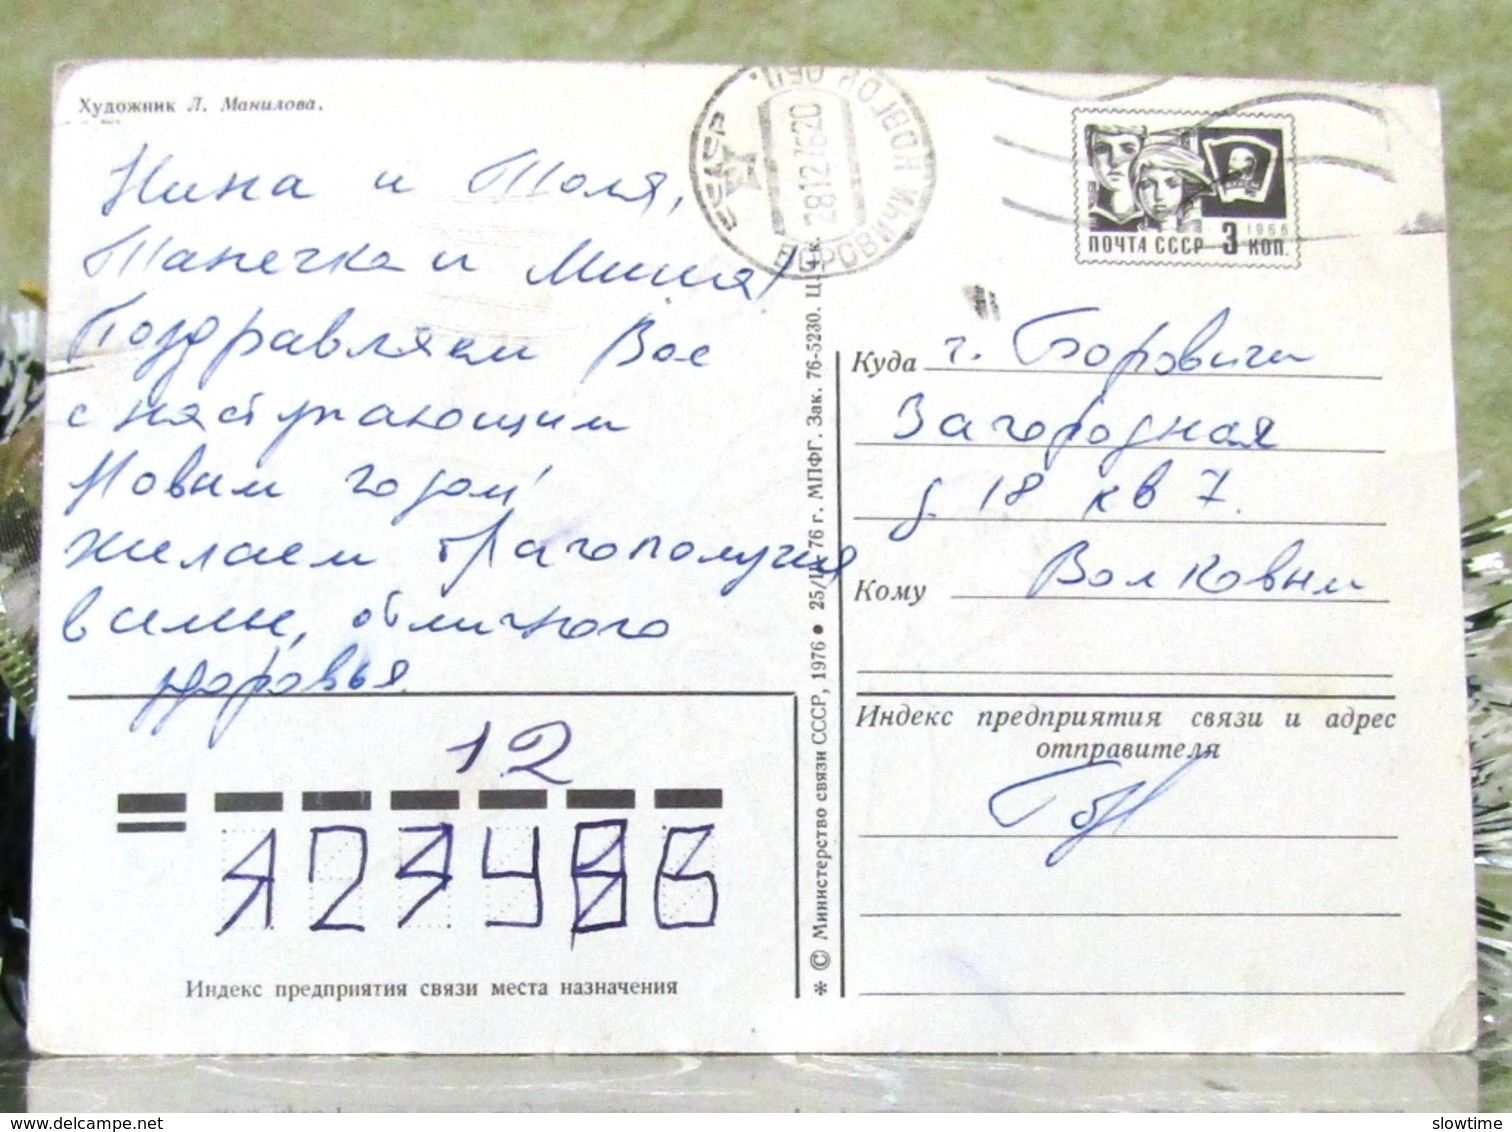 Художник Л. Манилова.
Нина и Толя,
Танечка и Миша!
Поздравляем Вас
с наступающим
Новым годом!
желаем благополучия
в семье, отличного
здоровья.
12
Индекс предприятия связи места назначения
* © Министерство связи СССР, 1976 ● 25/IX 76 г. МПФГ. Зак. 76-5230. Ц. 4 к.
СССР
НОВГОР. ОБЛ.
28127620
БОРОВИЧИ
ПОЧТА СССР 3 КОП.
1966
Куда г. Боровичи
Загородная
д. 18 кв 7.
Кому Волковым
Индекс предприятия связи и адрес
отправителя